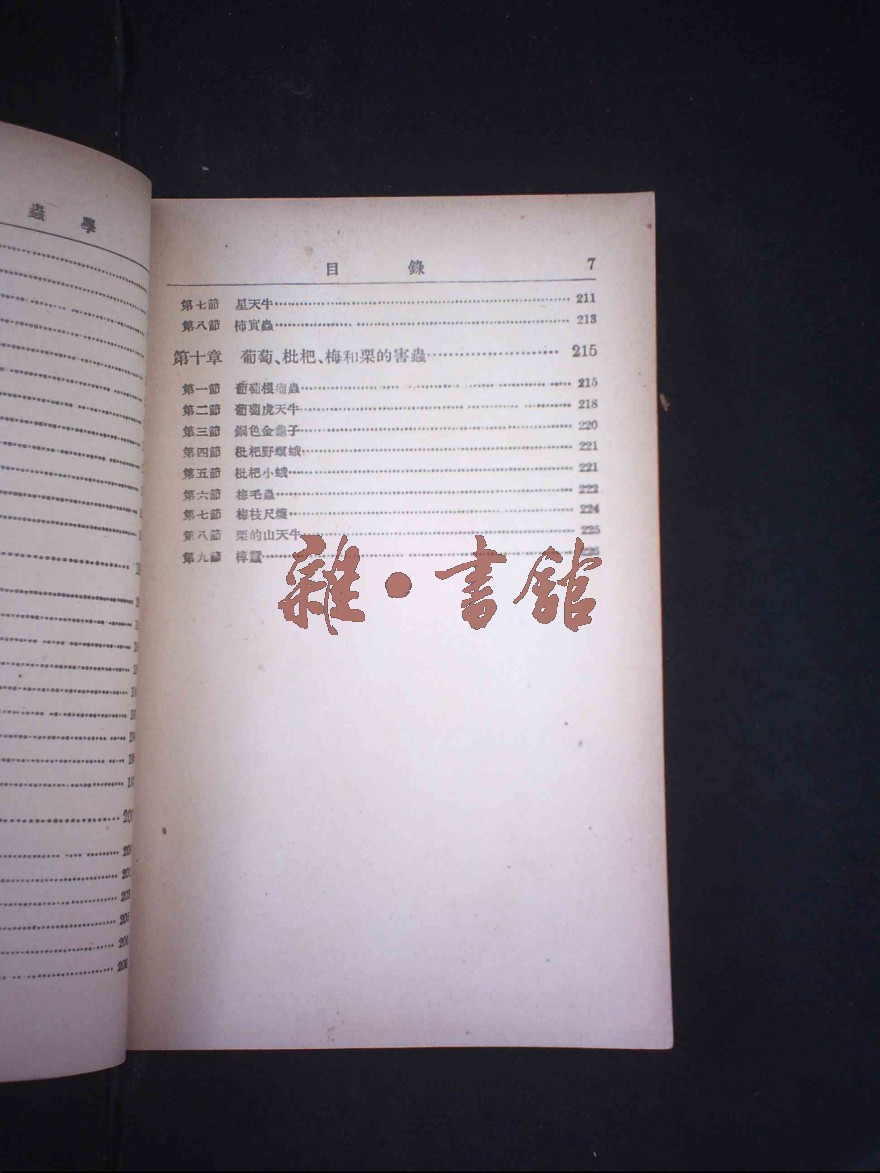 蟲 學
目 錄 7
第七節 星天牛 211
第八節 柿實蟲 213
第十章 葡萄、枇杷、梅和栗的害蟲 215
第一節 葡萄根瘤蟲 215
第二節 葡萄虎天牛 218
第三節 銅色金龜子 220
第四節 枇杷野螟蛾 221
第五節 枇杷小蛾 221
第六節 梅毛蟲 222
第七節 梅枝尺蠖 224
第八節 栗的山天牛 225
第九節 樟蠶 226
雜·書館
200
202
205
206
208